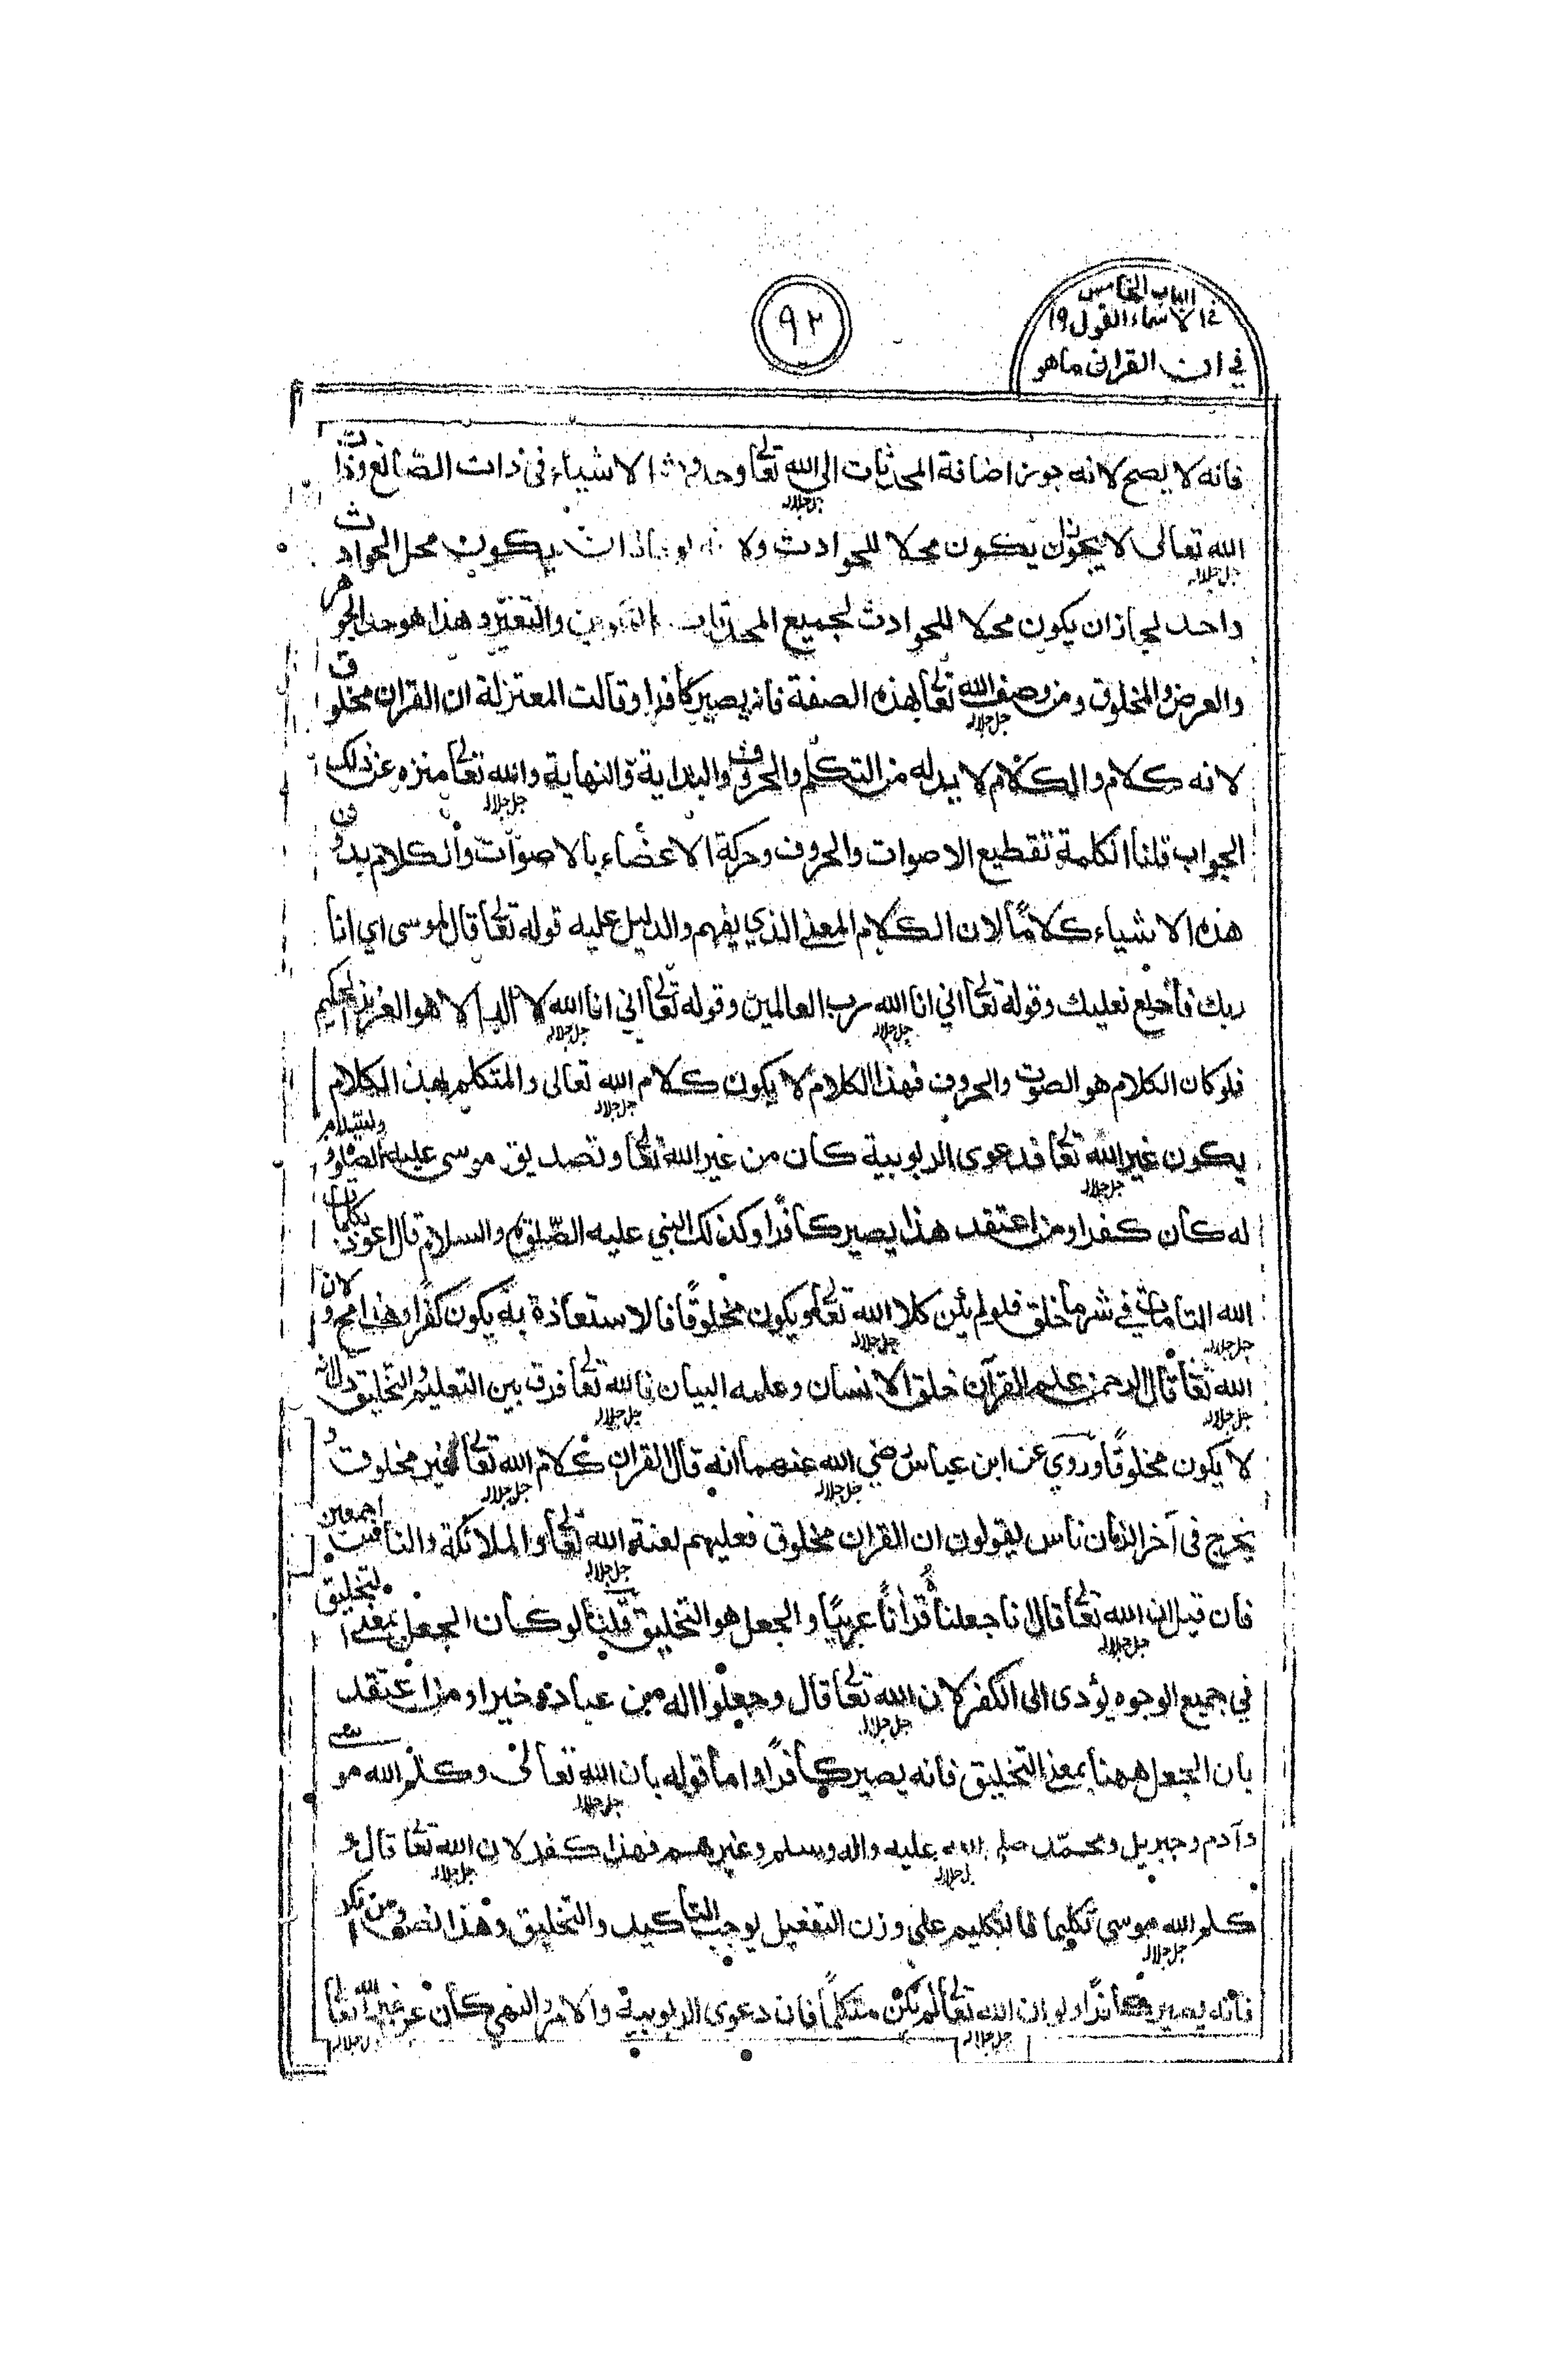 الباب الخامس
في الاسماء القول ١٩
في ان القران ماهو
٩٢
فانه لا يصح لانه جوز اضافة المحدثات الى الله تعالى وحدوث الاشياء في ذات الصانع وذات
جل جلاله
الله تعالى لا يجوز ان يكون محلا للحوادث ولا يكون محل الحوادث
جل جلاله
واحد لجاز ان يكون محلا للحوادث لجميع المحدثات والتغير وهذا هو حد الجوهر
والعرض والمخلوق ومن وصف الله تعالى بهذه الصفة فانه يصير كافرا وقالت المعتزلة ان القران مخلوق
جل جلاله
لانه كلام والكلام لا بد له من التكلم والحروف والبداية والنهاية والله تعالى منزه عن ذلك
جل جلاله
الجواب قلنا الكلمة تقطيع الاصوات والحروف وحركة الاعضاء بالاصوات والكلام بدون
هذه الاشياء كلاما لان الكلام المعنى الذي يفهم والدليل عليه قوله تعالى قال لموسى اي انا
ربك فاخلع نعليك وقوله تعالى اني انا الله رب العالمين وقوله تعالى اني انا الله لا اله الا هو العزيز الحكيم
جل جلاله جل جلاله
فلو كان الكلام هو الصوت والحروف فهذا الكلام لا يكون كلام الله تعالى والمتكلم بهذا الكلام
جل جلاله
يكون غير الله تعالى فدعوى الربوبية كان من غير الله تعالى وتصديق موسى عليه الصلوة والسلام
جل جلاله
له كان كفرا ومن اعتقد هذا يصير كافرا وكذلك النبي عليه الصلوة والسلام قال اعوذ بكلمات
الله التامات في شر ما خلق فلو لم يكن كلام الله تعالى ويكون مخلوقا فالاستعاذة به يكون كفرا وهذا لان
جل جلاله جل جلاله
الله تعالى قال الرحمن علم القرآن خلق الانسان وعلمه البيان فالله تعالى فرق بين التعليم والتخليق
جل جلاله جل جلاله
لا يكون مخلوقا وروي عن ابن عباس رضي الله عنهما انه قال القران كلام الله تعالى غير مخلوق و
جل جلاله جل جلاله
يخرج في آخر الزمان ناس ليقولون ان القران مخلوق فعليهم لعنة الله تعالى والملائكة والناس اجمعين
جل جلاله
فان قيل ان الله تعالى قال انا جعلناه قرانا عربيا والجعل هو التخليق قلنا لو كان الجعل بمعنى التخليق
جل جلاله
في جميع الوجوه يؤدى الى الكفر لان الله تعالى قال وجعلوا له من عباده خيرا ومن اعتقد
جل جلاله
بان الجعل ههنا بمعنى التخليق فانه يصير كافرا واما قوله بان الله تعالى وكلم الله موسى
جل جلاله
وآدم وجبريل ومحمد صلى الله عليه واله وسلم وغيرهم فهذا كفر لان الله تعالى قال و
جل جلاله جل جلاله
كلم الله موسى تكليما فالتكليم على وزن التفعيل يوجب التأكيد والتخليق وهذا نص ومن انكر
جل جلاله
فانه يصير كافرا ولو ان الله تعالى لم يكن متكلما فان دعوى الربوبية والامر والنهي كان عن غير الله تعالى
جل جلاله جل جلاله